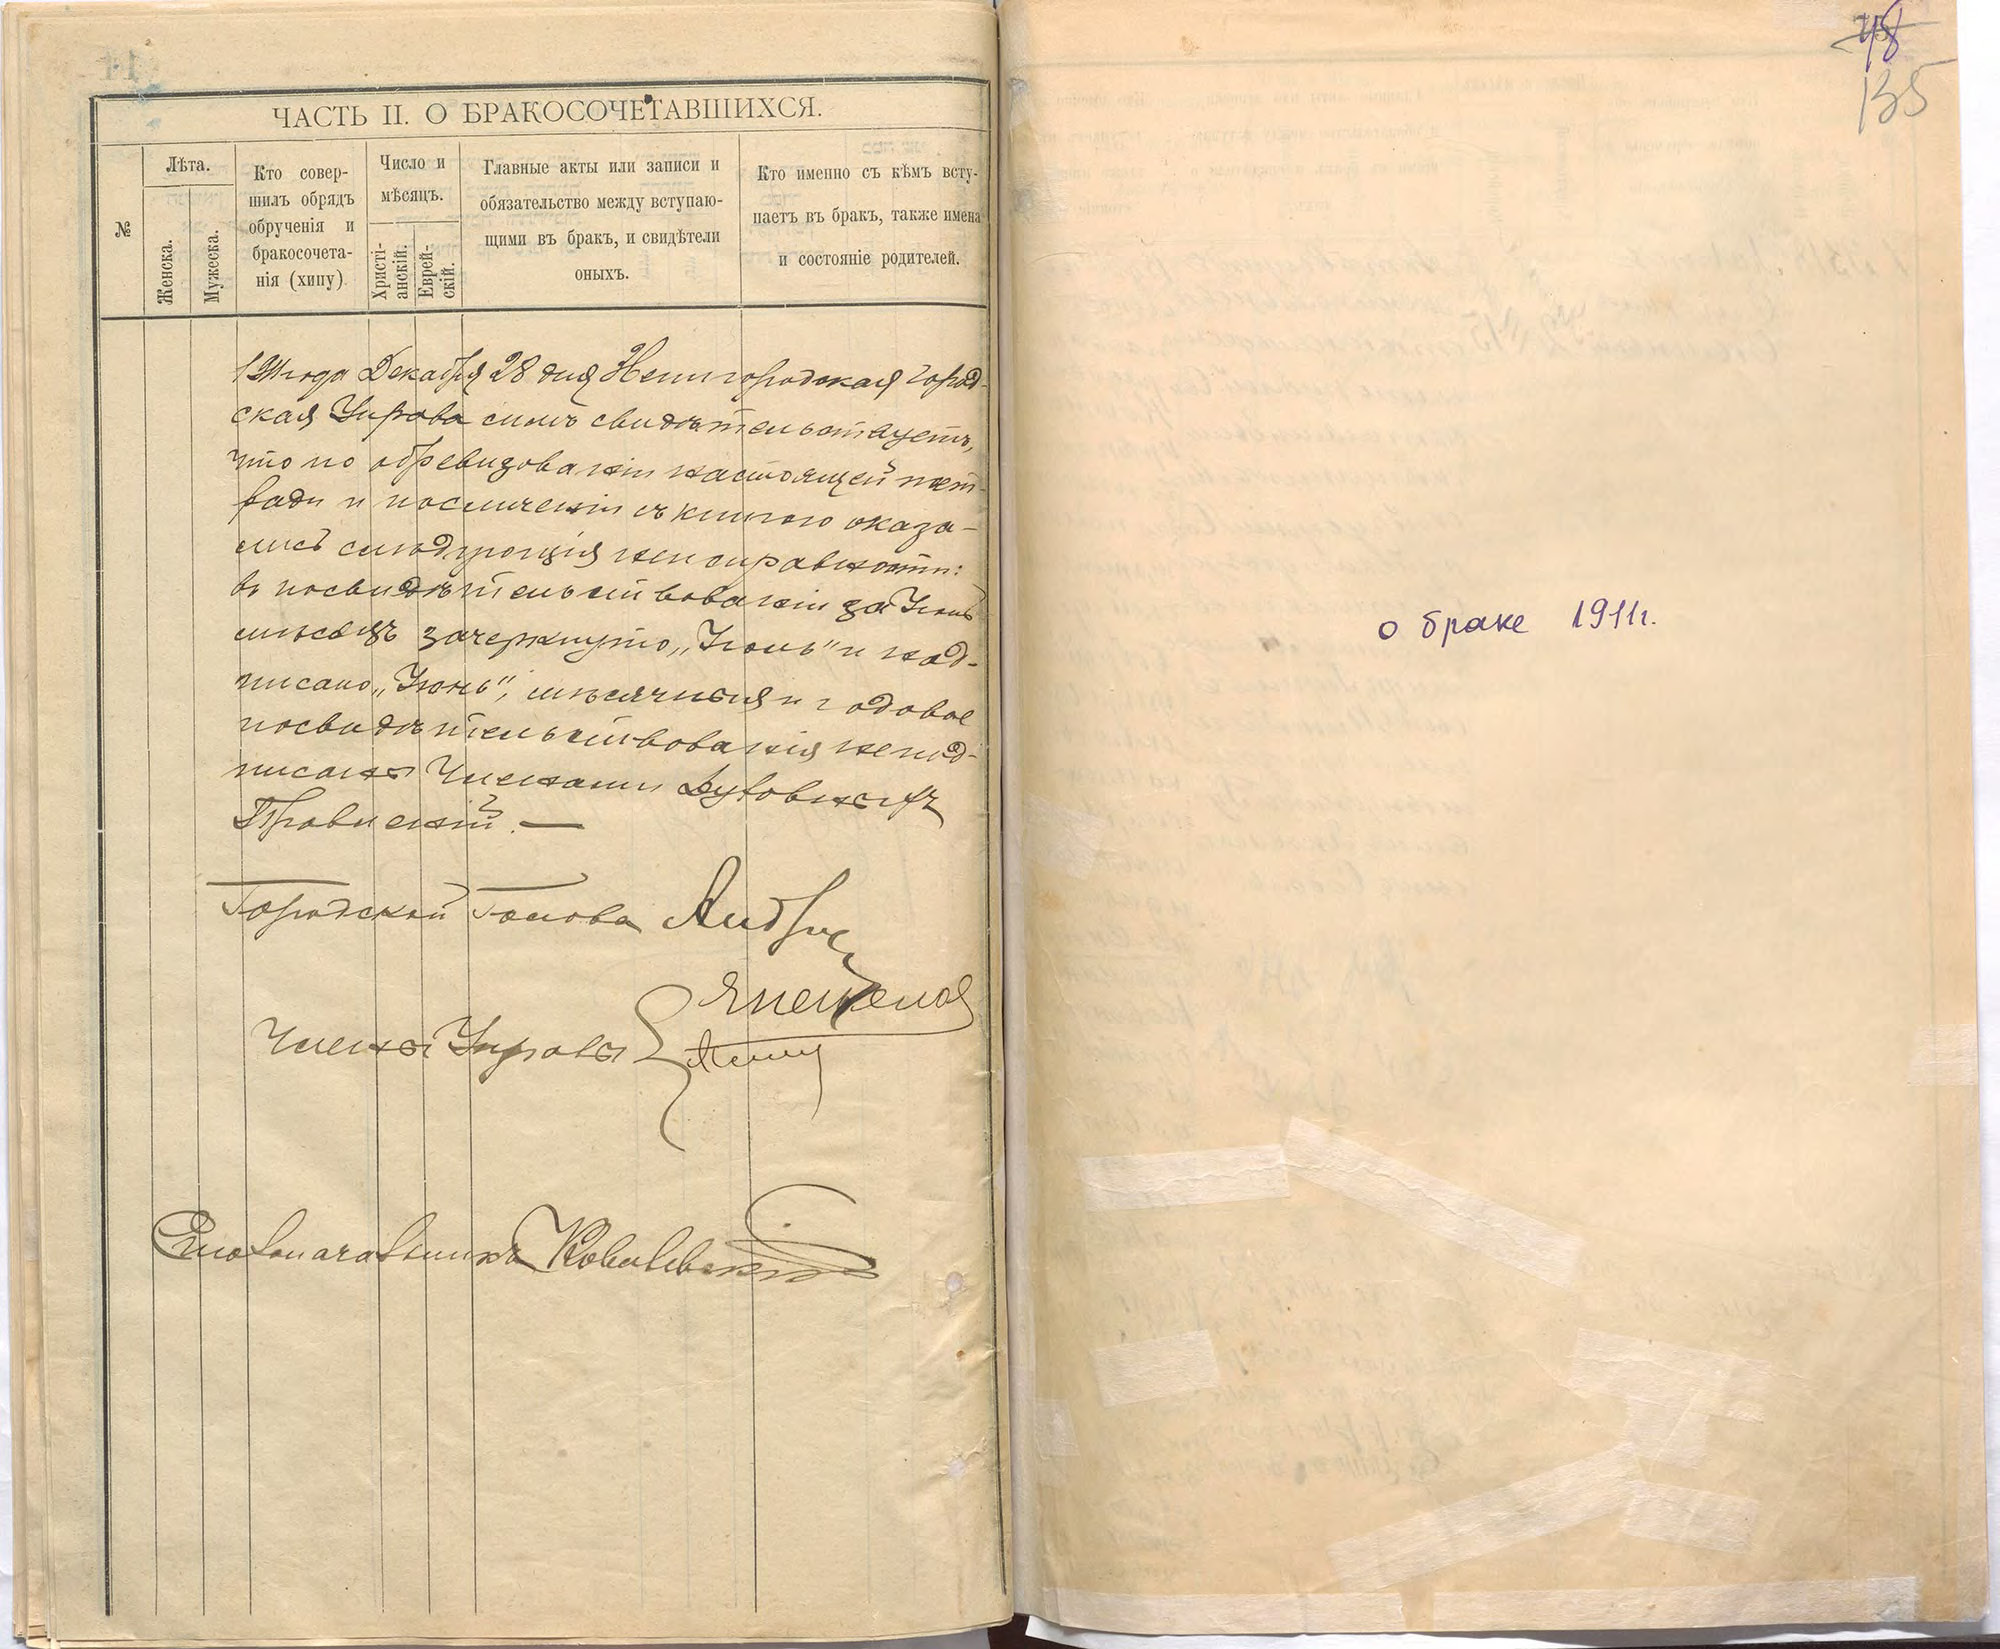 ЧАСТЬ II. О БРАКОСОЧЕТАВШИХСЯ.
№
Лѣта.
Женска.
Мужеска.
Кто совер-
шилъ обрядъ
обрученія и
бракосочета-
нія (хипу)
Число и
мѣсяцъ.
Христі-
анскій.
Еврей-
скій.
Главные акты или записи и
обязательство между вступаю-
щими въ бракъ, и свидѣтели
оныхъ.
Кто именно съ кѣмъ всту-
паетъ въ бракъ, также имена
и состояніе родителей.
года Декабря 28 дня Город-
ская Управа симъ свидѣтельствуетъ,
что по обревизованіи настоящей тет-
ради и по сличеніи съ книгою оказа-
лись слѣдующія неисправности:
въ посвидѣтельствованіи за Іюнь
мѣсяцъ зачеркнуто „Іюль" и над-
писано „Іюнь", мѣсячныя и годовое
посвидѣтельствованія не под-
писаны Членами Духовныхъ
Правленій. —
Городской Голова
Члены Управы
Столоначальникъ Ковалевскій
48
135
о браке 1911г.